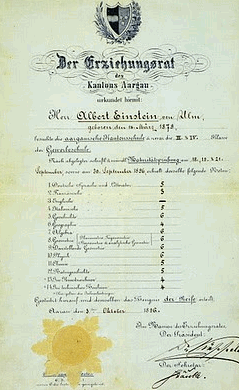 Der Erziehungsrat
des
Kantons Aargau
urkundet hiermit:
Herr Albert Einstein von Ulm,
geboren den 14. März 1879,
besuchte die aargauische Kantonsschule & zwar die III. & IV. Klasse
der Gewerbeschule.
Nach abgelegter schriftl. & mündl. Maturitätsprüfung am 18., 19. & 21.
September, sowie am 30. September 1896 erhielt derselbe folgende Noten:
1. Deutsche Sprache und Litteratur 5
2. Französische 3
3. Englische —
4. Italienische 5
5. Geschichte 6
6. Geographie 4
7. Algebra 6
8. Geometrie 6
9. Darstellende Geometrie 5
10. Physik 6
11. Chemie 5
12. Naturgeschichte 5
13. Im Kunstzeichnen 4
14. Im technischen Zeichnen 4
Gestützt hierauf wird demselben das Zeugnis der Reife erteilt.
Aarau den 3ten Oktober 1896.
Im Namen des Erziehungsrates,
Der Präsident:
Der Sekretär: